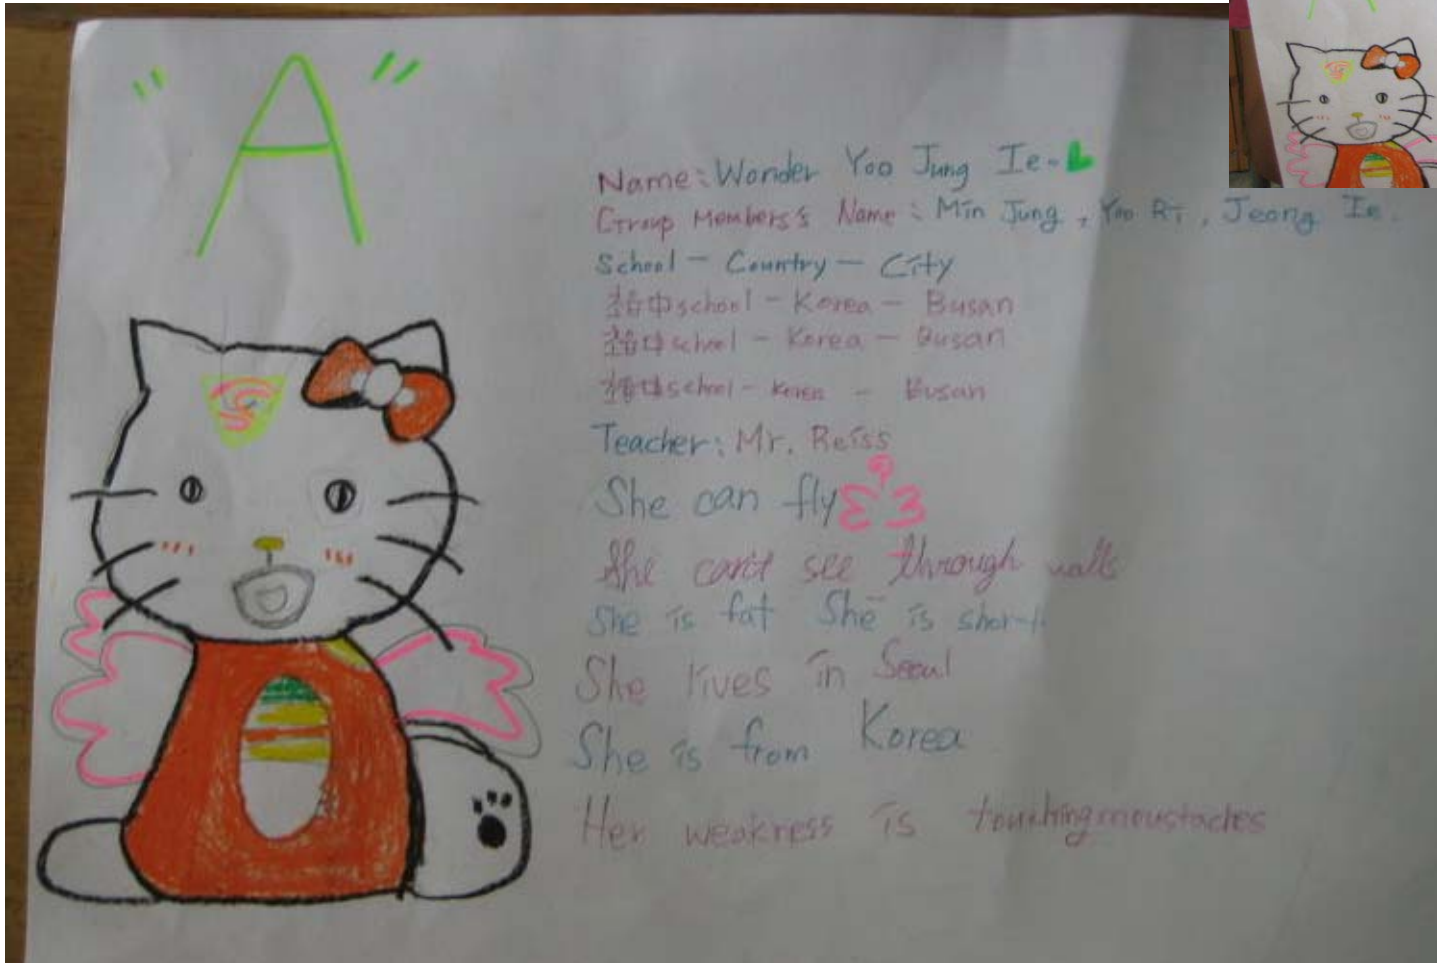 " A "
Name: Wonder Yoo Jung Ie-
Group Members's Name: Min Jung, Yoo Ri, Jeong Ie.
School - Country - City
中school - Korea - Busan
中school - Korea - Busan
中school - Korea - Busan
Teacher: Mr. Reiss
She can fly
She can't see through walls
She is fat She is short
She lives in Seoul
She is from Korea
Her weakness is touching moustaches